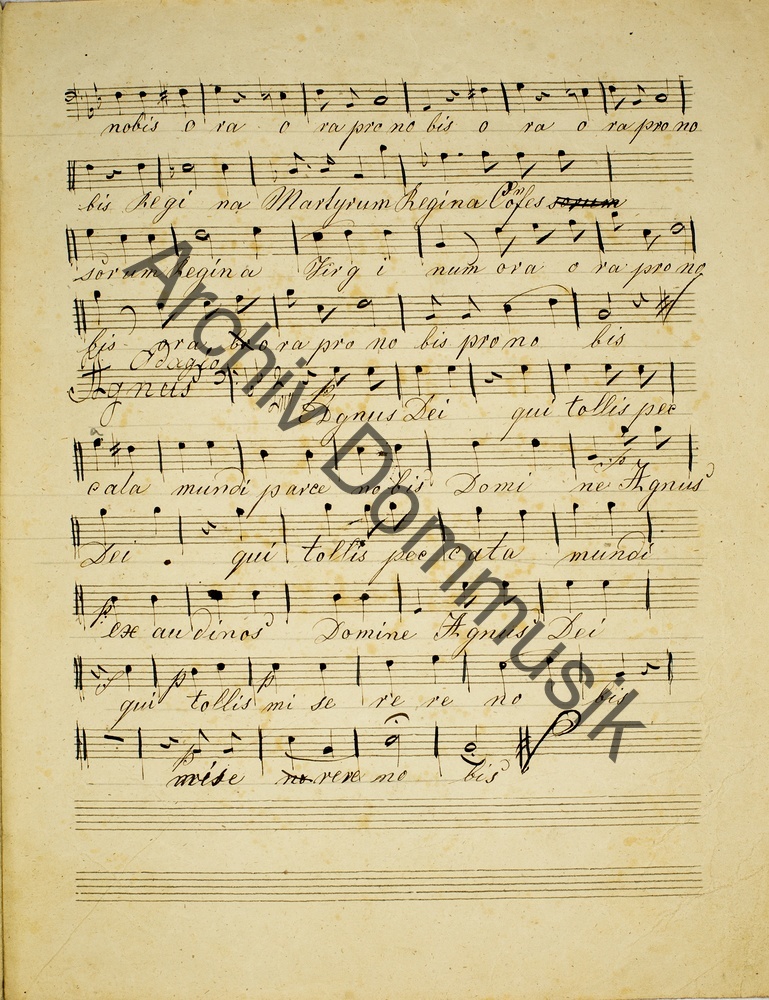 nobis o ra o ra pro no bis o ra o ra pro no
bis Regi na Martyrum Regina Cofes sorum
sorum Regina Virg i num ora o ra pro no
bis ora o ra pro no bis pro no bis
Adagio
Agnus Agnus Dei qui tollis pec
cata mundi parce nobis Domi ne Agnus
Dei . qui tollis pec cata mundi
p ex audinos Domine Agnus Dei
qui p tollis p mi se re re no bis
p mise no rere no bis
Archiv Dommusik